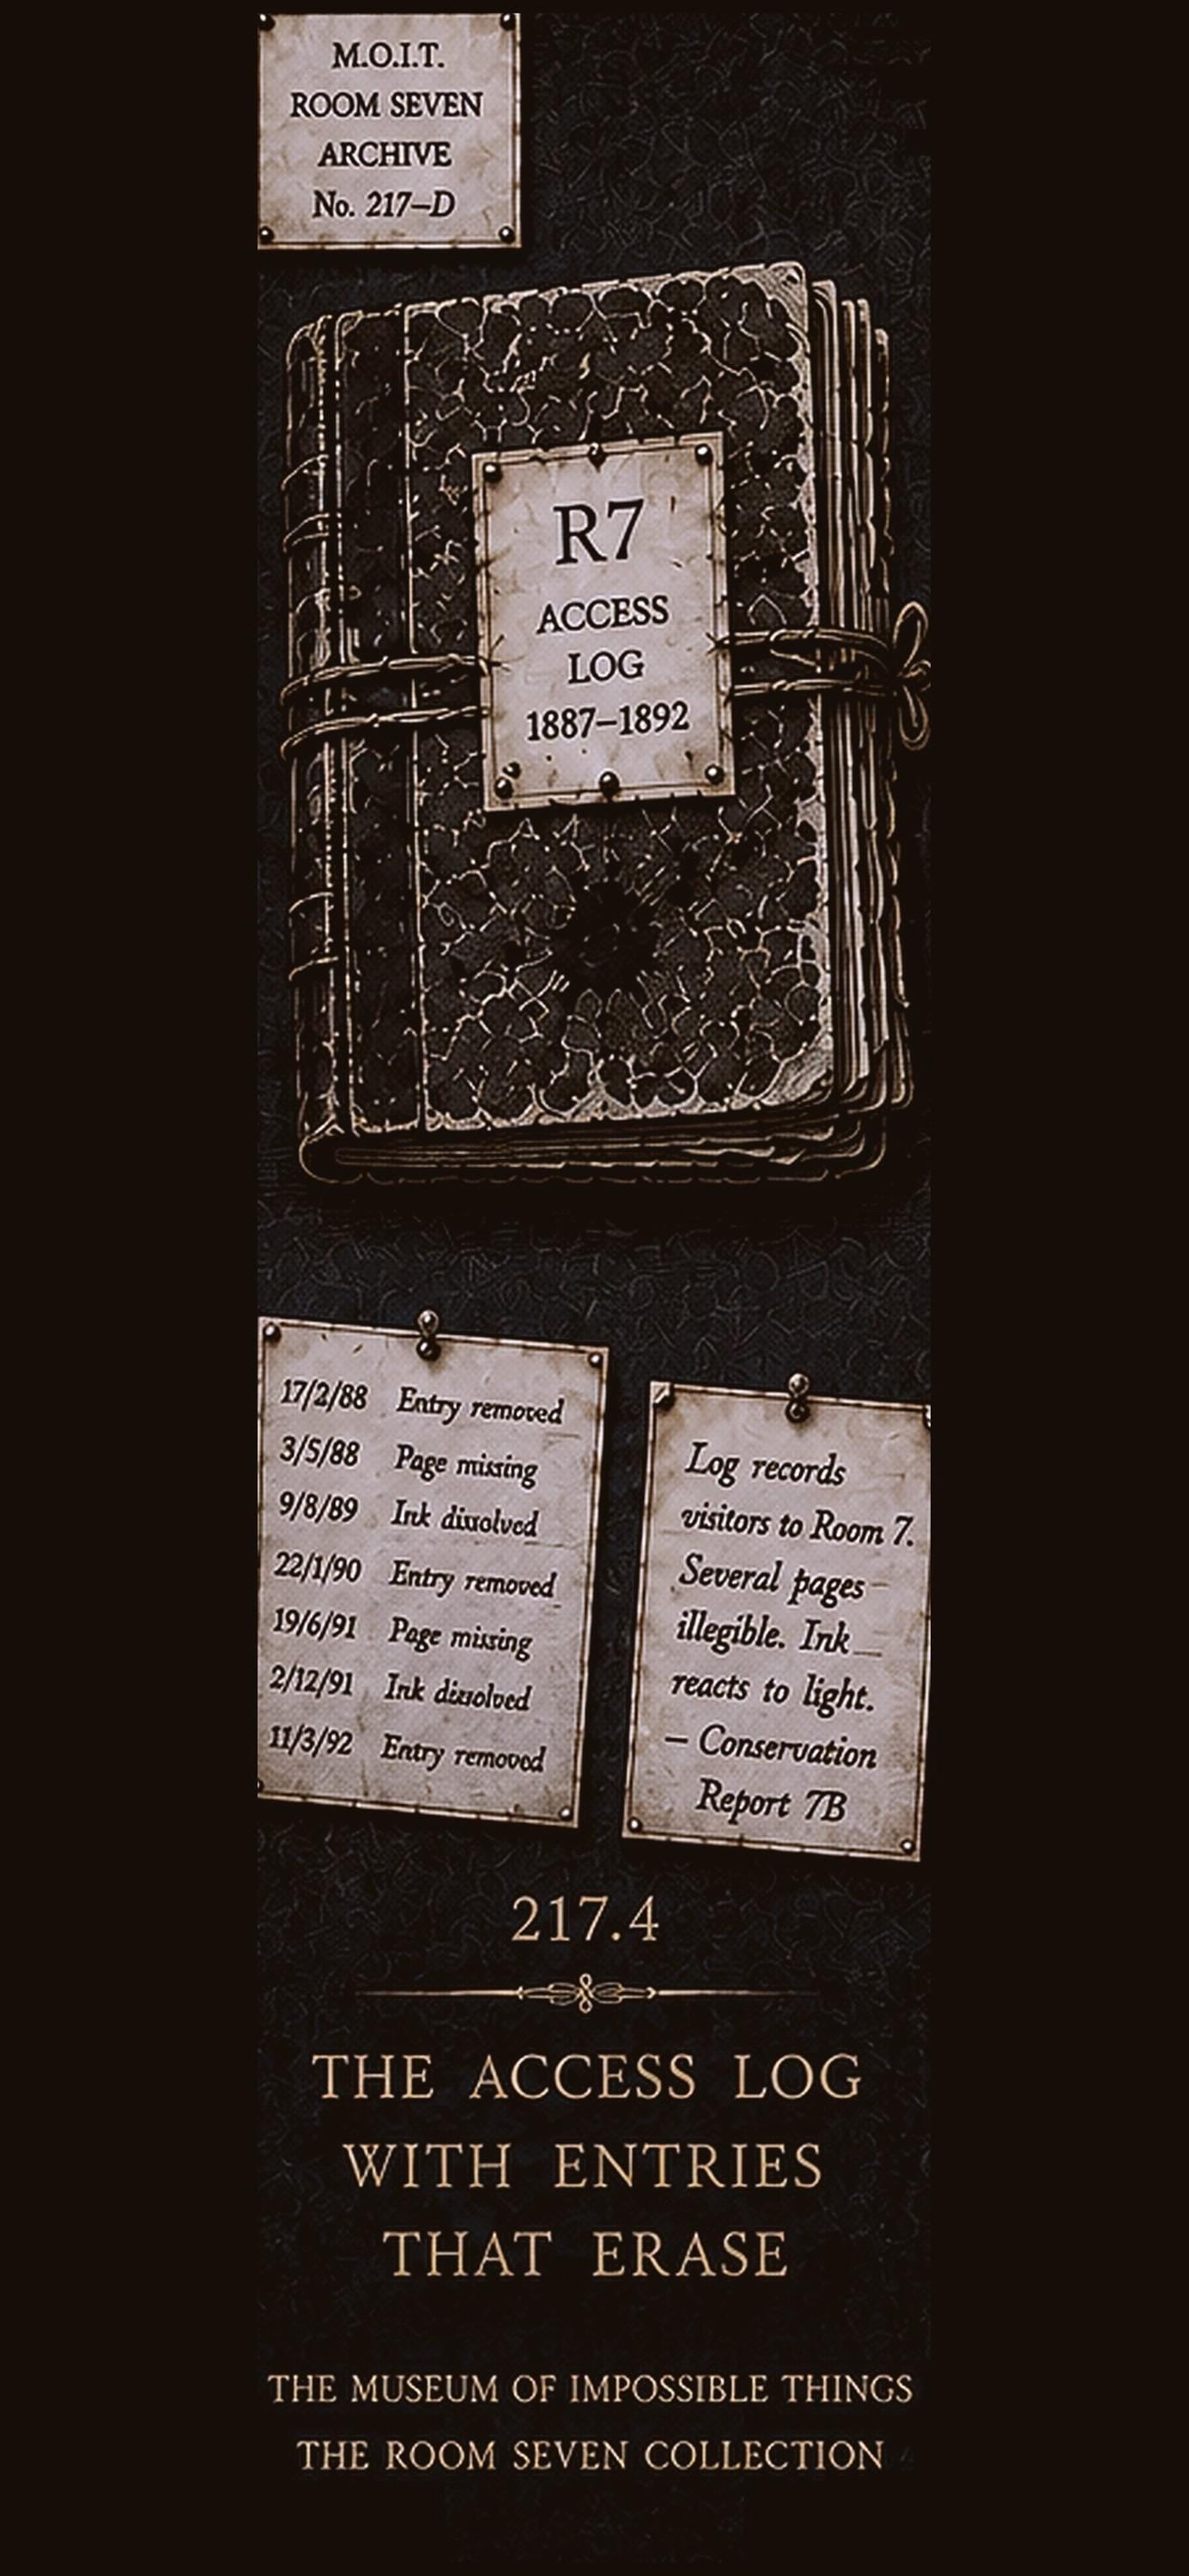 M.O.I.T.
ROOM SEVEN
ARCHIVE
No. 217–D
R7
ACCESS
LOG
1887–1892
17/2/88 Entry removed
3/5/88 Page missing
9/8/89 Ink dissolved
22/1/90 Entry removed
19/6/91 Page missing
2/12/91 Ink dissolved
11/3/92 Entry removed
Log records
visitors to Room 7.
Several pages
illegible. Ink
reacts to light.
– Conservation
Report 7B
217.4
THE ACCESS LOG
WITH ENTRIES
THAT ERASE
THE MUSEUM OF IMPOSSIBLE THINGS
THE ROOM SEVEN COLLECTION